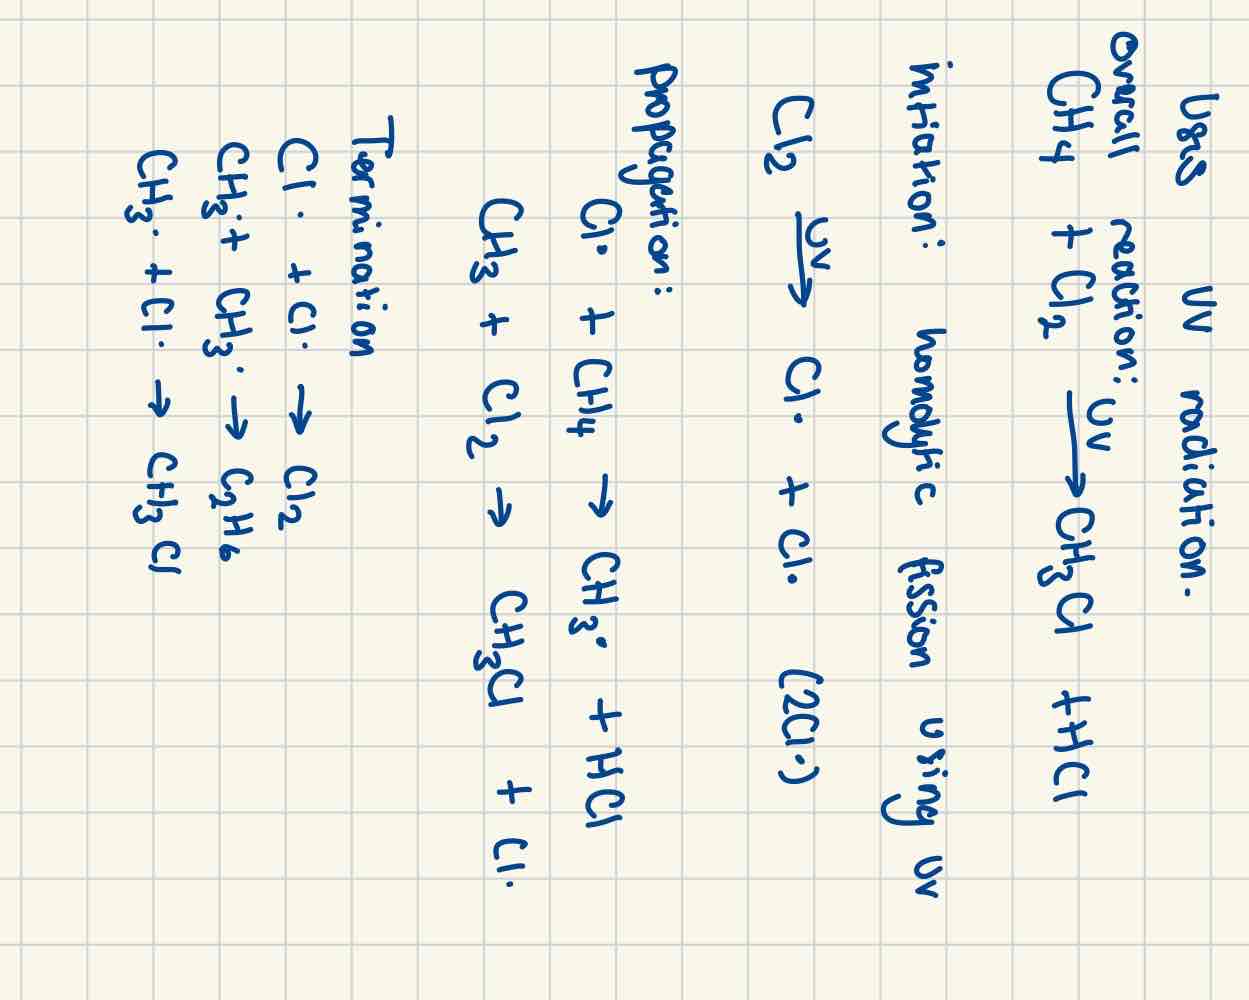 Uses UV radiation.
Overall reaction:
CH4 + Cl2 UV→ CH3Cl + HCl
initiation: homolytic fission using UV
Cl2 UV→ Cl• + Cl• (2Cl•)
propagation:
Cl• + CH4 → CH3• + HCl
CH3 + Cl2 → CH3Cl + Cl•
Termination
Cl• + Cl• → Cl2
CH3• + CH3• → C2H6
CH3• + Cl• → CH3Cl